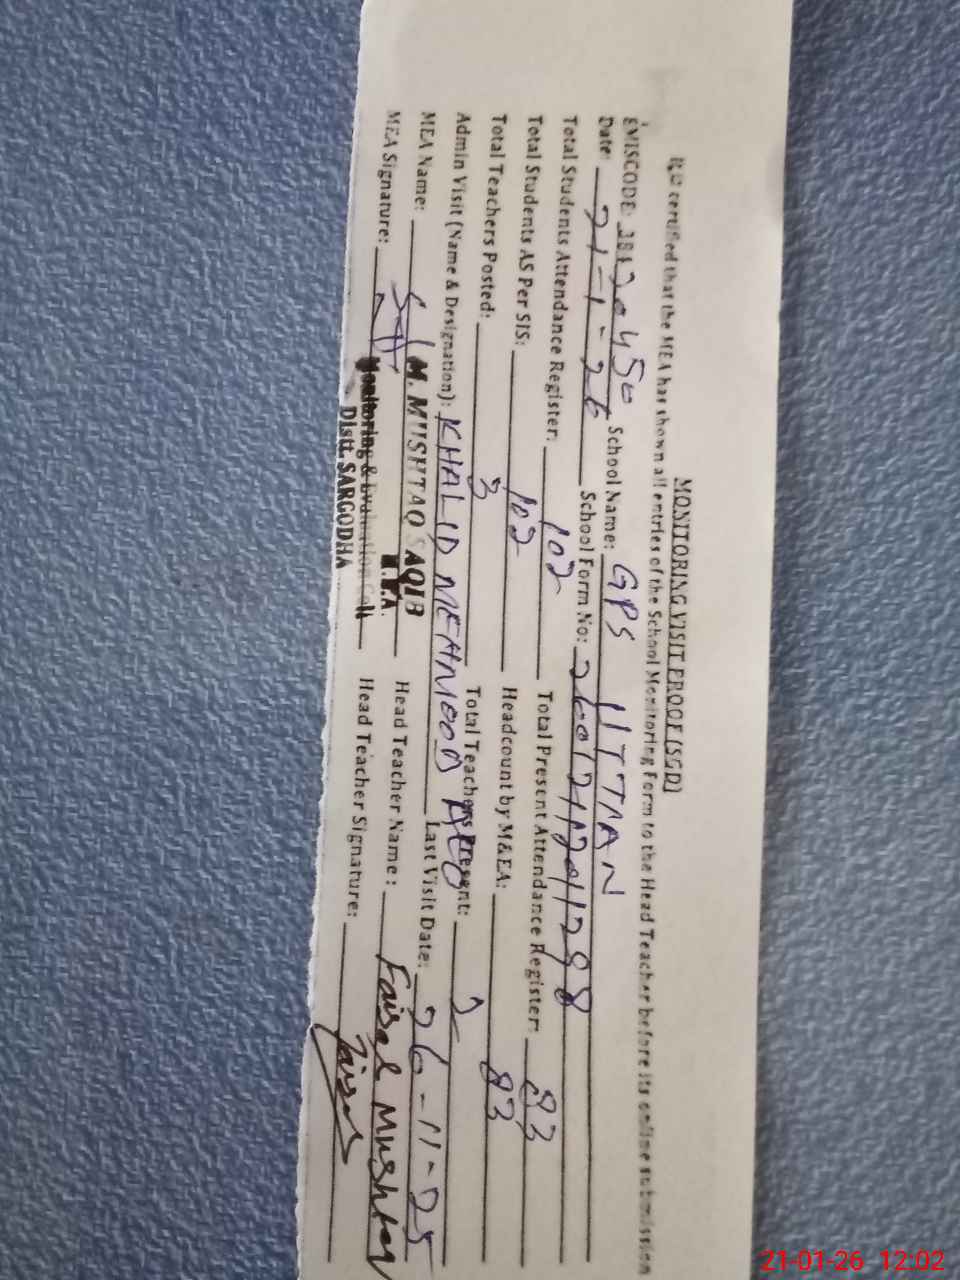 MONITORING VISIT PROOF (SGD)
certified that the MEA has shown all entries of the School Monitoring Form to the Head Teacher before its online submission
EMISCODE: 38420450 School Name: GPS IITTAN
Date: 21-1-26 School Form No:
Total Students Attendance Register: 102 Total Present Attendance Register: 83
Total Students AS Per SIS: 102 Headcount by M&EA: 83
Total Teachers Posted: 3 Total Teachers Present: 2
Admin Visit (Name & Designation): KHALID MEHMOOD AEO Last Visit Date: 26-11-25
MEA Name: M. MUSHTAQ SAQIB Head Teacher Name: Faisal Mushtaq
M.E.A.
MEA Signature: Head Teacher Signature: Faisal
Monitoring & Evaluation Cell
Distt. SARGODHA
21-01-26 12:02